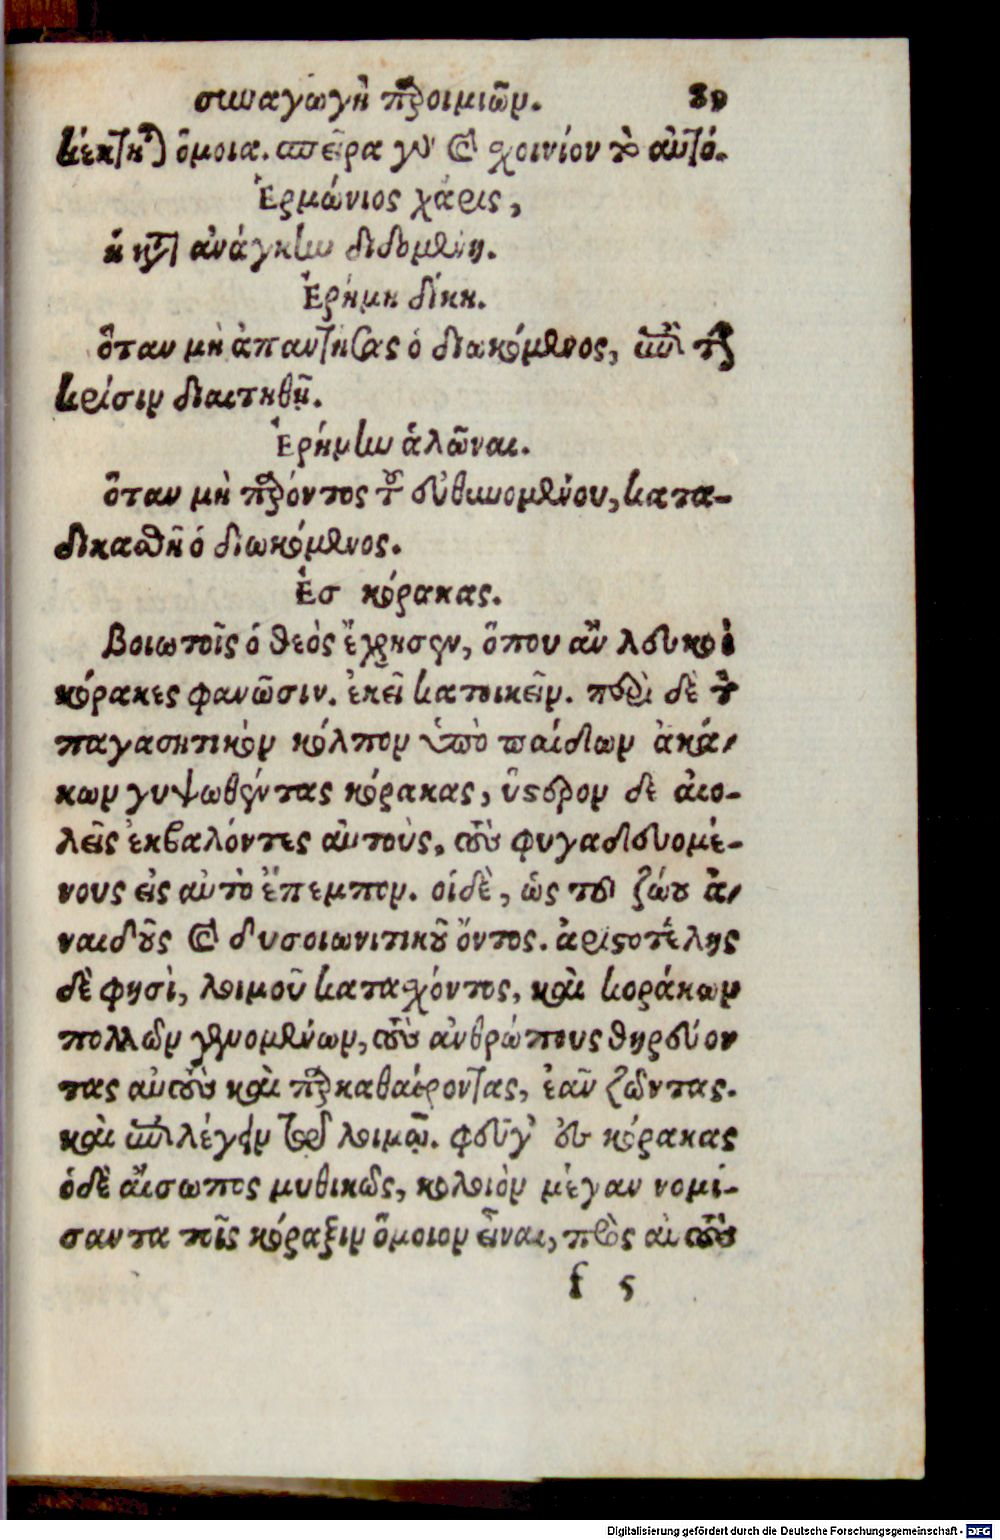 συναγωγὴ παροιμιῶν. 89
κέκτηται ὅμοια. σπεῖρα γὰρ καὶ χοινίον τὸ αὐτό.
Ἑρμώνιος χάρις,
ἡ κατ' ἀνάγκην διδομένη.
Ἐρήμη δίκη.
ὅταν μὴ ἀπαντήσας ὁ διωκόμενος, ἐπὶ τὴν
κρίσιν διαιτηθῇ.
Ἐρήμην ἁλῶναι.
ὅταν μὴ παρόντος τοῦ εὐθυνομένου, κατα-
δικασθῆ ὁ διωκόμενος.
Ἐσ κόρακας.
Βοιωτοῖς ὁ θεὸς ἔχρησεν, ὅπου ἂν λευκοὶ
κόρακες φανῶσιν. ἐκεῖ κατοικεῖν. περὶ δὲ τὸν
παγασητικὸν κόλπον ὑπὸ παίδων ἀκά-
κων γυψωθέντας κόρακας, ὕστερον δὲ αἰο-
λεῖς ἐκβαλόντες αὐτοὺς, τοὺς φυγαδευομέ-
νους εἰς αὐτὸ ἔπεμπον. οἱδὲ, ὡς τοῦ ζώου ἀ-
ναιδοῦς καὶ δυσοιωνιτικοῦ ὄντος. ἀριστοτέλης
δὲ φησὶ, λοιμοῦ καταχόντος, καὶ κοράκων
πολλῶν γενομένων, τοὺς ἀνθρώπους θηρεύον
τας αὐτοὺς καὶ περικαθαίροντας, ἐᾶν ζῶντας.
καὶ ἐπιλέγειν τῷ λοιμῷ. φεῦγ' ἐς κόρακας
ὁδὲ αἴσωπος μυθικῶς, κολοιὸν μέγαν νομί-
σαντα τοῖς κόραξιν ὅμοιον εἶναι, πρὸς αὐτοὺς
f 5
Digitalisierung gefördert durch die Deutsche Forschungsgemeinschaft - DFG